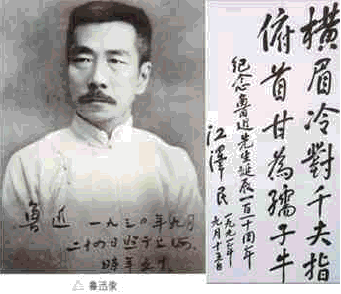 魯迅 一九三〇年九月
二十四日照于上海,
時年五十
△ 鲁迅像
橫眉冷對千夫指
俯首甘為孺子牛
纪念鲁迅先生诞辰一百一十周年
江澤民
一九九一年
九月十五日